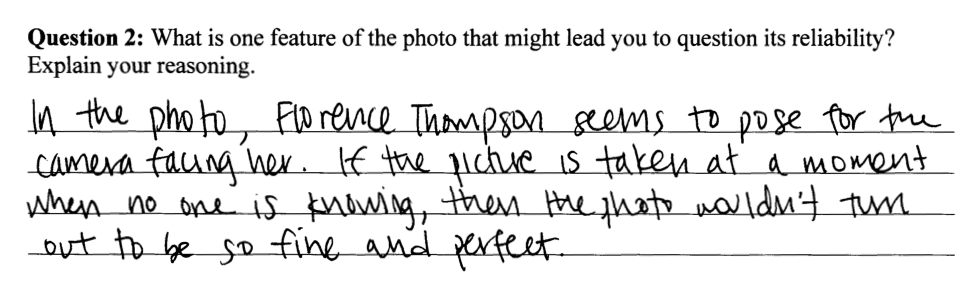 Question 2: What is one feature of the photo that might lead you to question its reliability?
Explain your reasoning.
In the photo, Florence Thompson seems to pose for the
camera facing her. If the picture is taken at a moment
when no one is knowing, then the photo wouldn't turn
out to be so fine and perfect.